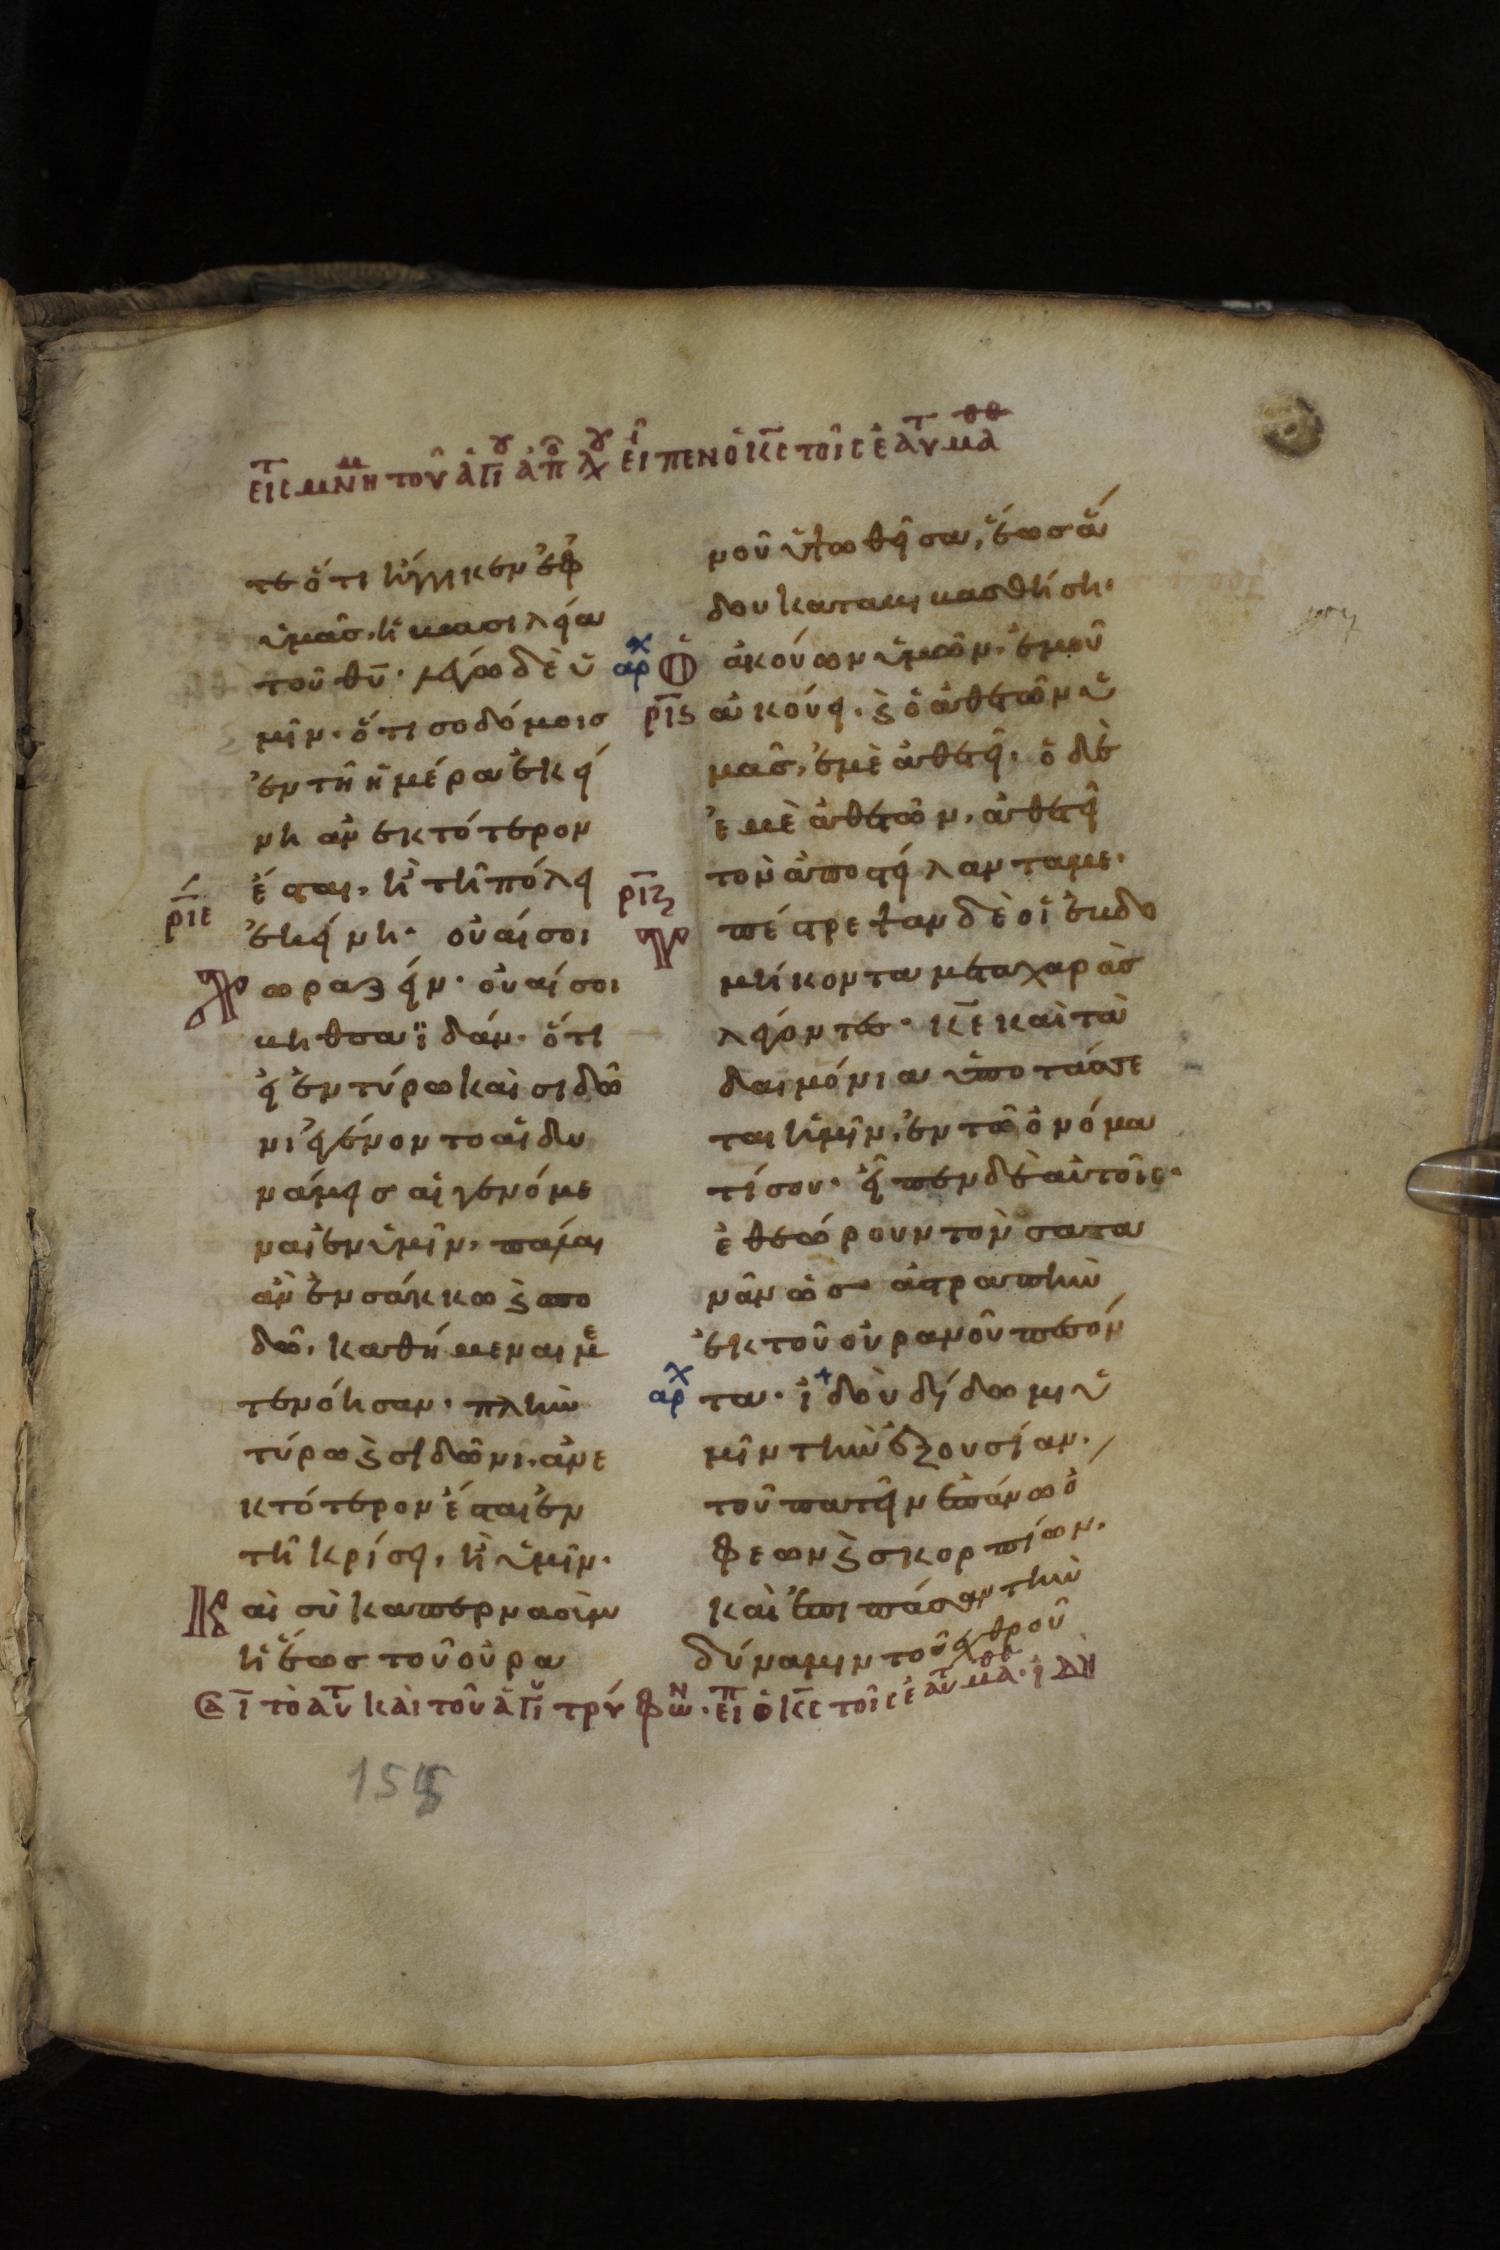 εἰς τ μνη μ τοῦ ἁγι ου ἀπο λου εἶπεν ὁ κς τοῖς ἑαυτ μαθθ
τε ὅτι ἤγγικεν ἐφ
ὑμᾶς· ἡ βασιλεία
τοῦ θυ· λέγω δὲ ὑ
μῖν· ὅτι σοδόμοισ
ἐν τῆ ἡμέρα ἐκεί
νη ἀνεκτότερον
ἔσται, ἢ τῆ πόλει
ριε ἐκείνη· οὐαί σοι
Χωραζείν· οὐαί σοι
βηθσαϊδάν· ὅτι
εἰ ἐν τύρω καὶ σιδῶ
νι ἐγένοντο αἱ δυ
νάμεις αἱ γενόμε
ναι ἐν ὑμῖν, πάλαι
ἂν ἐν σάκκω ϗ σπο
δῶ, καθήμεναι με
τενόησαν· πλὴν
τύρω ϗ σιδῶνι, ἀνε
κτότερον ἔσται ἐν
τῆ κρίσει, ἢ ὑμῖν·
Καὶ σὺ καπερναοὺμ
ἡ ἕως τοῦ οὐρα
μοῦ ὑψωθεῖσα, ἕως ἅ
δου καταβιβασθήση·
αρχ Ὁ ἀκούων ὑμῶν, ἐμοῦ
ριϛ ἀκούει· ϗ ὁ ἀθετῶν ὑ
μᾶς, ἐμὲ ἀθετεῖ· ὁ δὲ
ἐμὲ ἀθετῶν, ἀθετεῖ
τὸν ἀποστείλαντα με·
ριζ Ὑπέστρεψαν δὲ οἱ ἑβδο
μήκοντα μετα χαρᾶσ
λέγοντες· κε καὶ τὰ
δαιμόνια ὑποτάσσε
ται ἡμῖν, ἐν τῶ ὀνόμα
τί σου· εἶπεν δὲ αὐτοῖς·
ἐθεώρουν τὸν σατα
νᾶν ὡς ἀστραπὴν
ἐκ τοῦ οὐρανοῦ πεσόν
αρχ τα· ἰδοὺ δίδωμι ὑ
μῖν τὴν ἐξουσίαν·
τοῦ πατεῖν ἐπάνω ὄ
φεων ϗ σκορπίων·
καὶ ἐπι πάσαν τὴν
δύναμιν τοῦ ἐχθροῦ
τὸ αυτ καὶ τοῦ ἁγιου τρύφων· εἰπ ὁ κς τοῖς ἑαυτ μαθθ· ἰδου
155